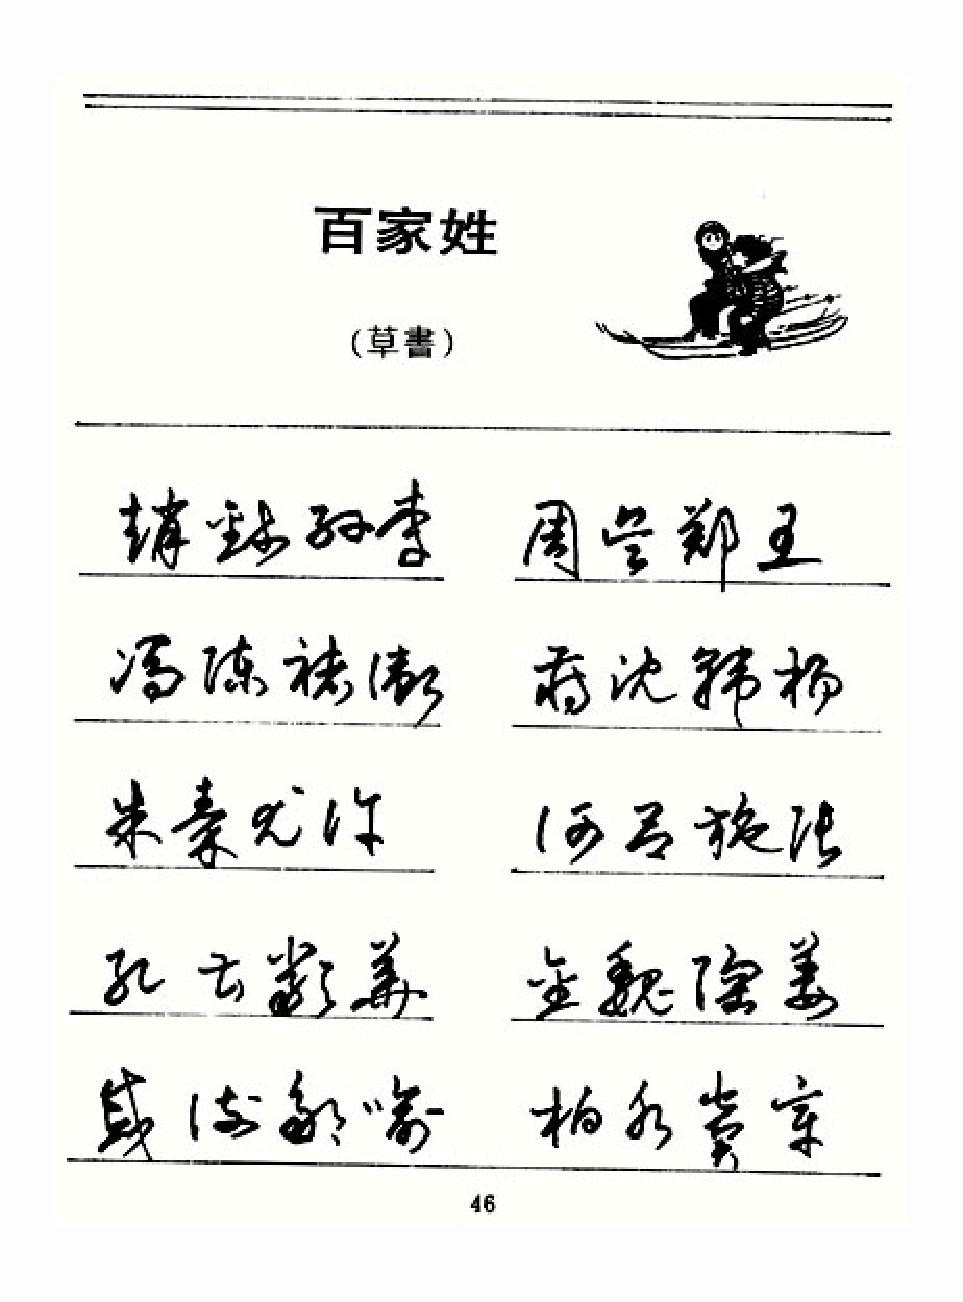 百家姓
(草書)
趙錢孫李 周吳鄭王
馮陳褚衛 蔣沈韓楊
朱秦尤許 何呂施張
孔曹嚴華 金魏陶姜
戚謝鄒喻 柏水竇章
46